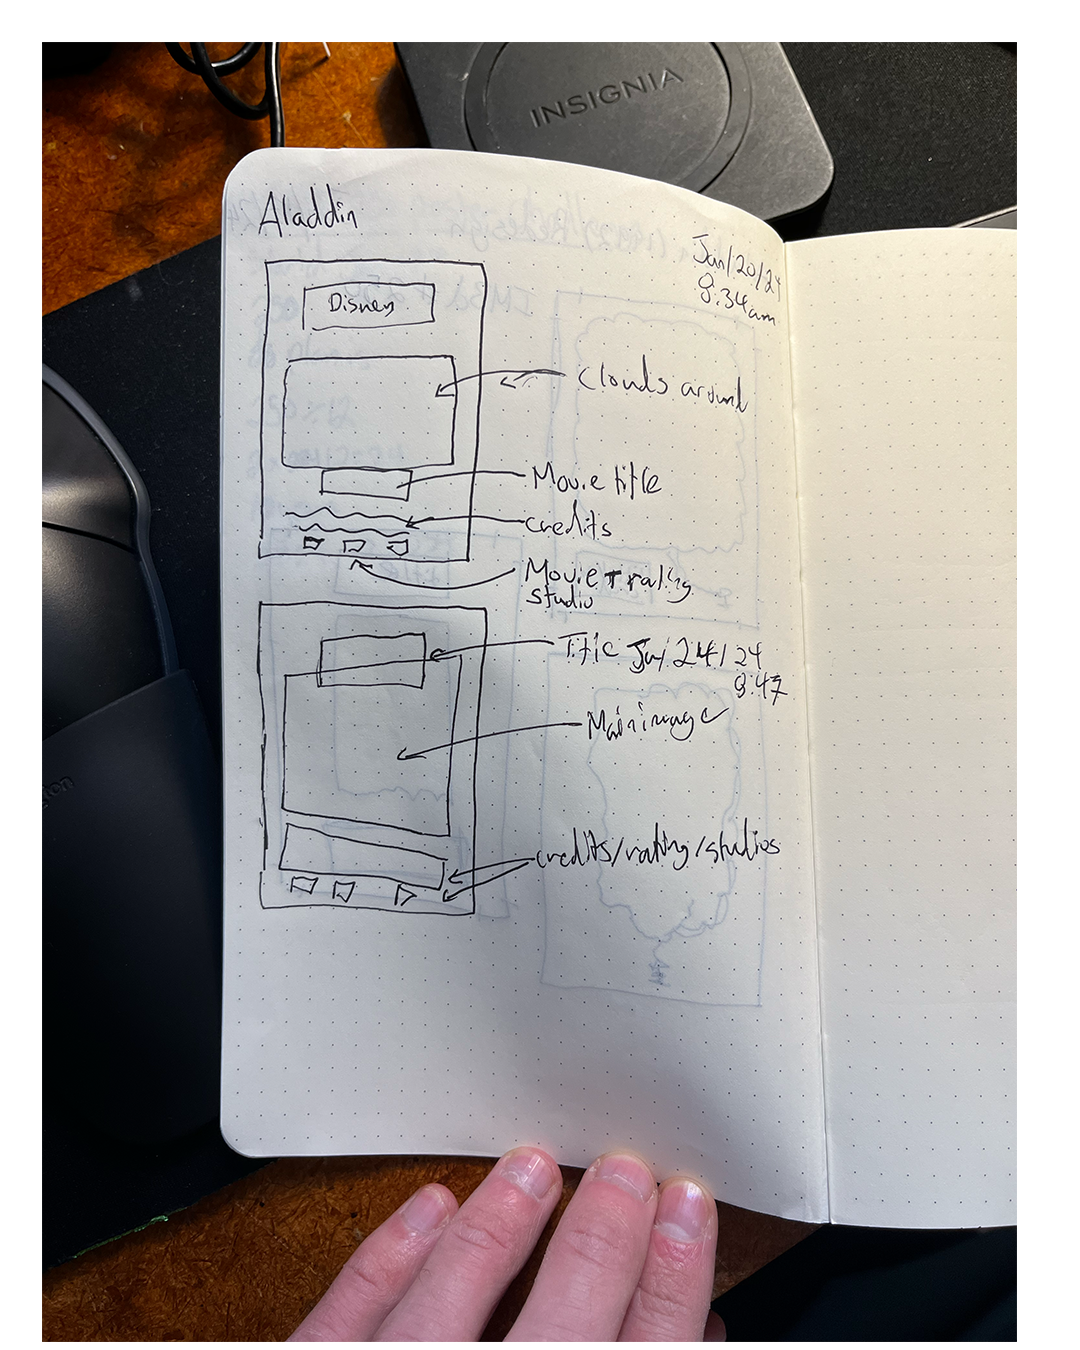 INSIGNIA
Aladdin
Jan/20/24
8:34am
Disney
clouds around
Movie title
credits
Movie rating
studio
Title Jan 24/24
8:47
Main image
credits/rating/studios